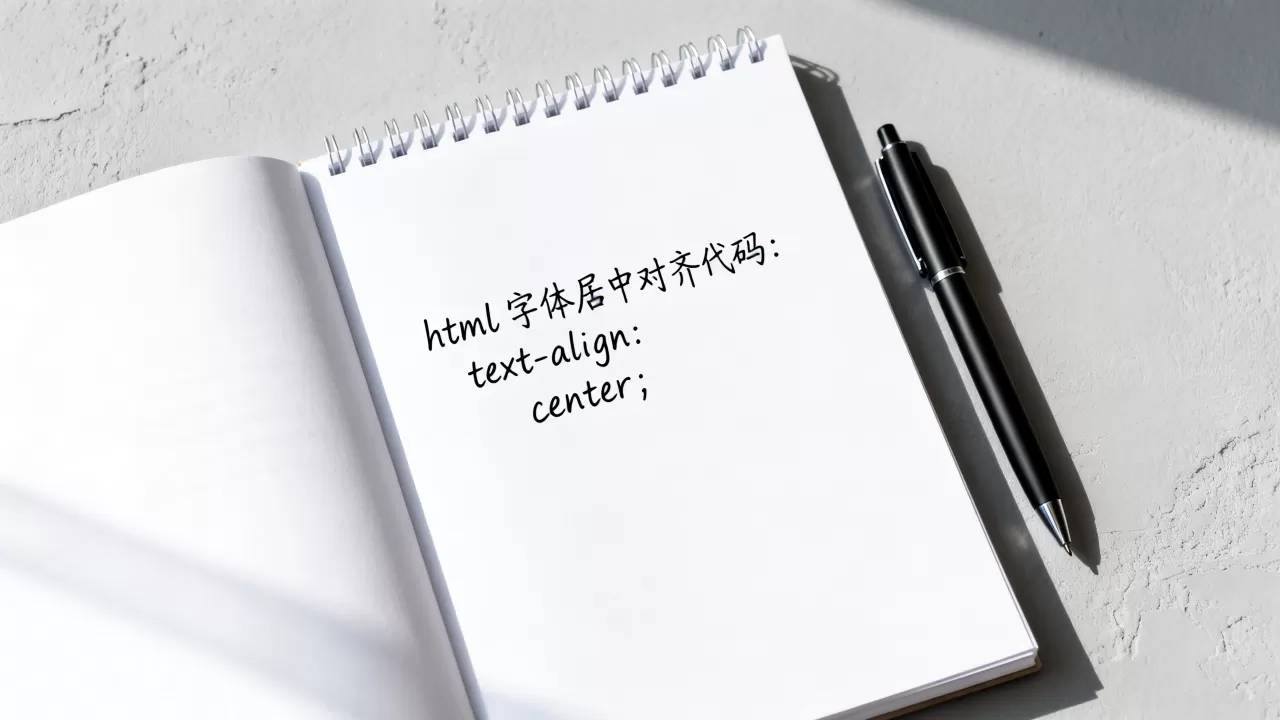 html 字体居中对齐代码：
text-align:
center;